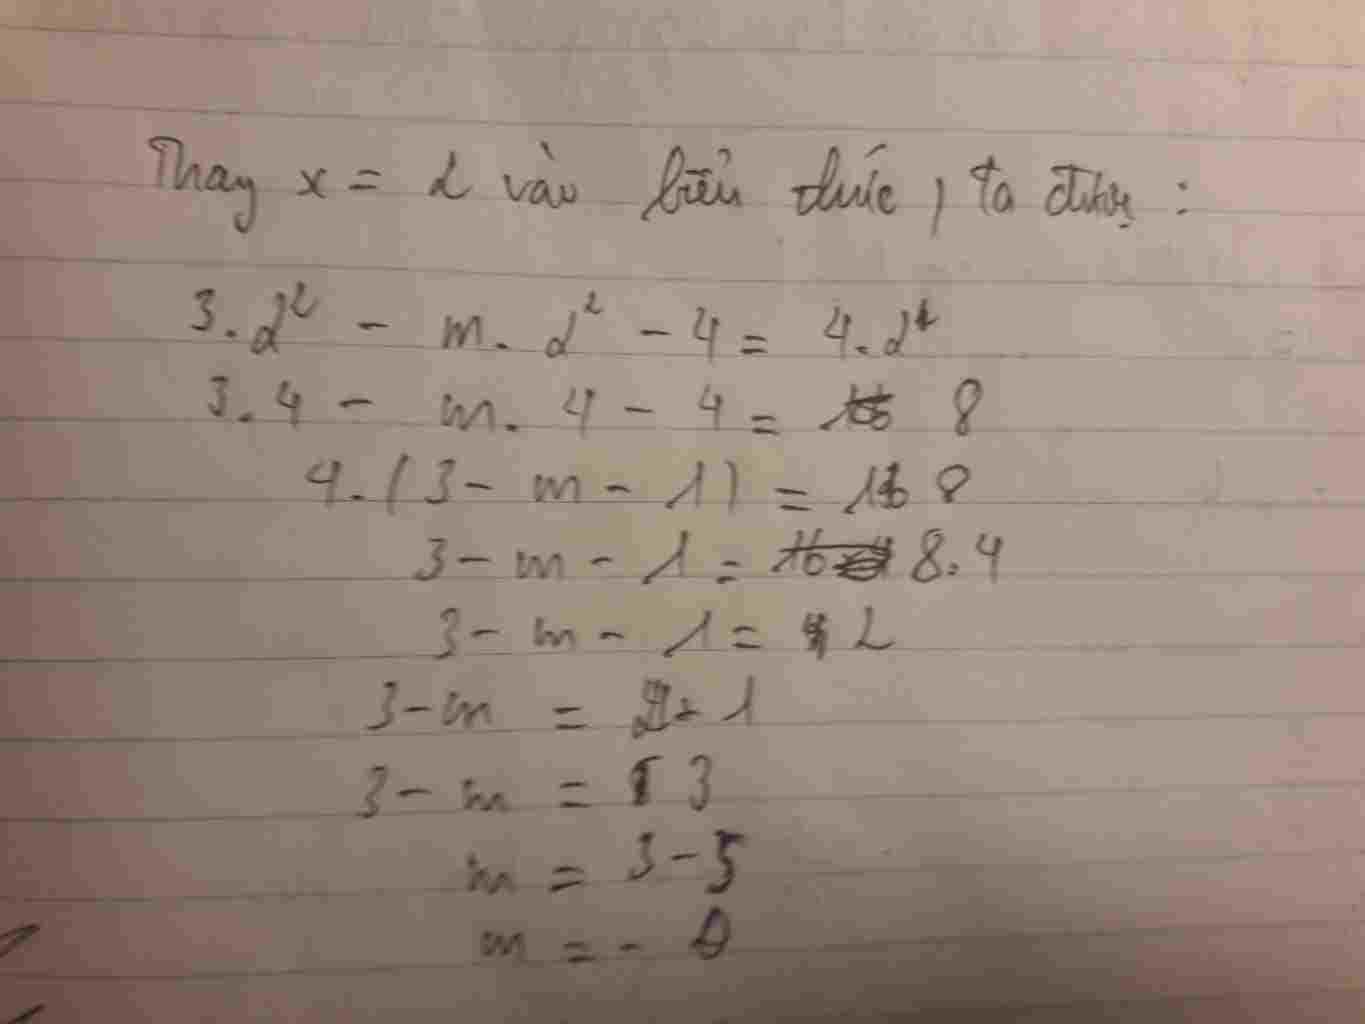 Thay x = 2 vào biểu thức, ta được :
3.2² - m. 2² - 4 = 4.2
3.4 - m. 4 - 4 = 8
4.(3 - m - 1) = 8
3 - m - 1 = 8.4
3 - m - 1 = 2
3 - m = 2 + 1
3 - m = 3
m = 3 - 3
m = 0